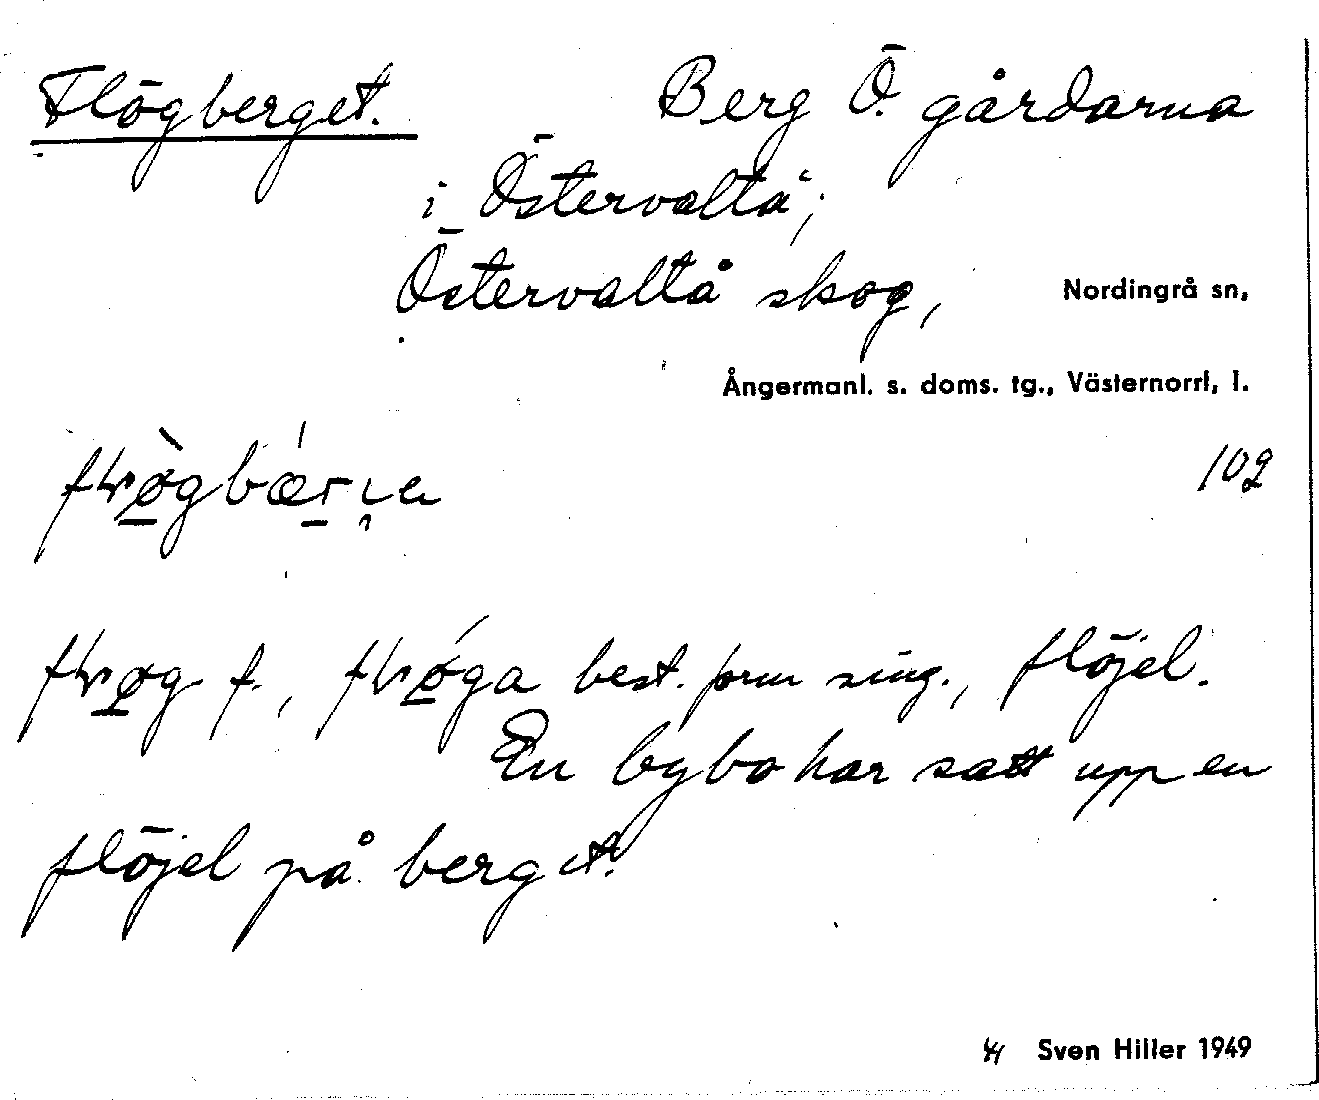 Flögberget. Berg Ö. gårdarna
i Östervaltå;
Östervaltå skog, Nordingrå sn,
Ångermanl. s. doms. tg., Västernorrl, l.
102
f. best. form sing., flöjel.
En bybo har satt upp en
flöjel på berget.
Sven Hiller 1949